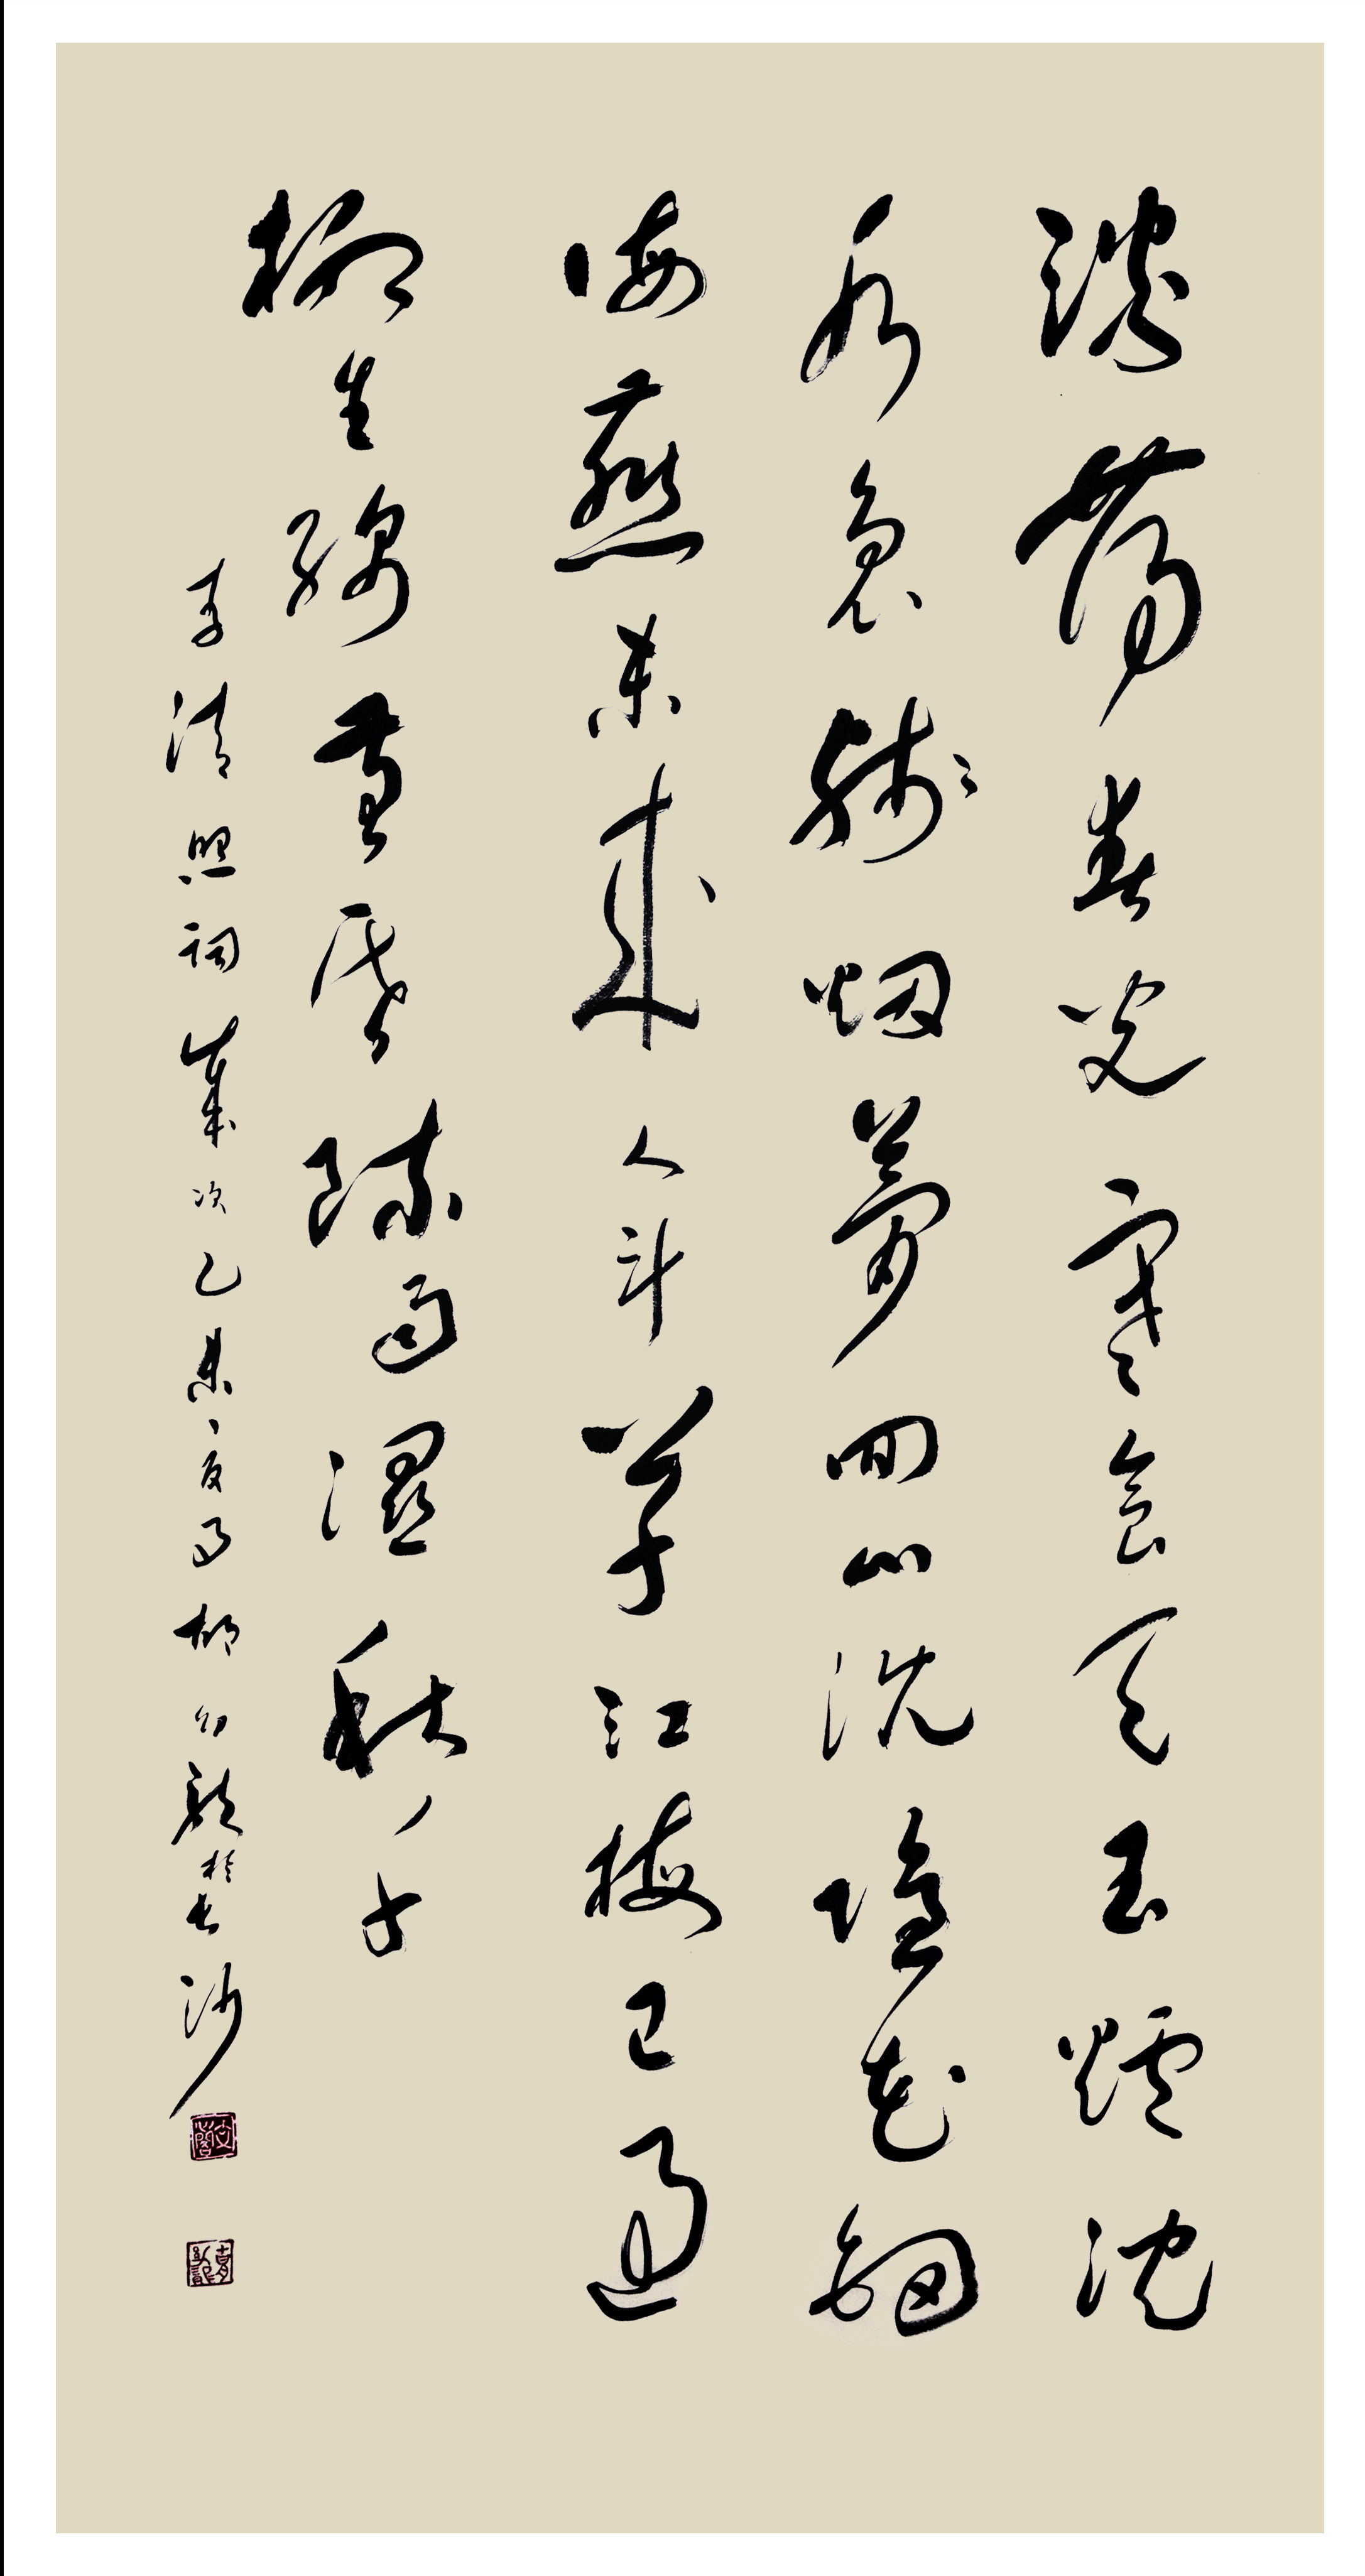 淡荡春光寒食天玉炉沈
水袅残烟梦回山枕隐花钿
海燕未来人斗草江梅已过
柳生绵黄昏疏雨湿秋千
李清照词岁次乙未夏月柳勿龙于长沙